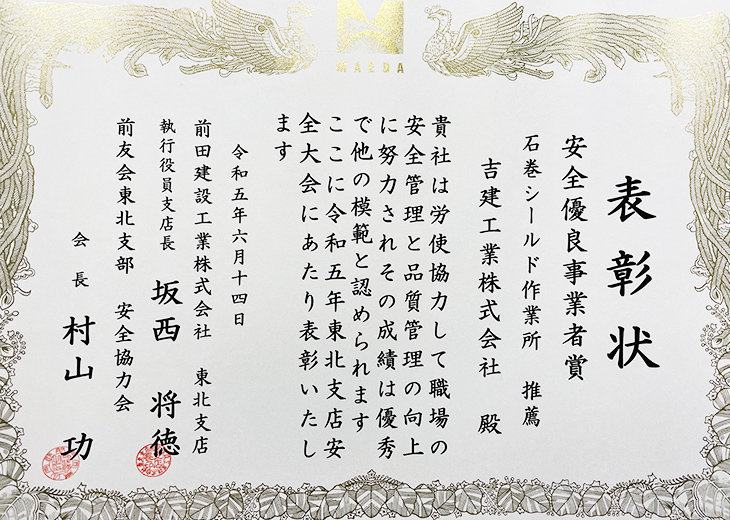 MAEDA
表彰状
安全優良事業者賞
石巻シールド作業所 推薦
吉建工業株式会社 殿
貴社は労使協力して職場の
安全管理と品質管理の向上
に努力されその成績は優秀
で他の模範と認められます
ここに令和五年東北支店安
全大会にあたり表彰いたし
ます
令和五年六月十四日
前田建設工業株式会社 東北支店
執行役員支店長 坂西 将徳
前友会東北支部 安全協力会
会長 村山 功